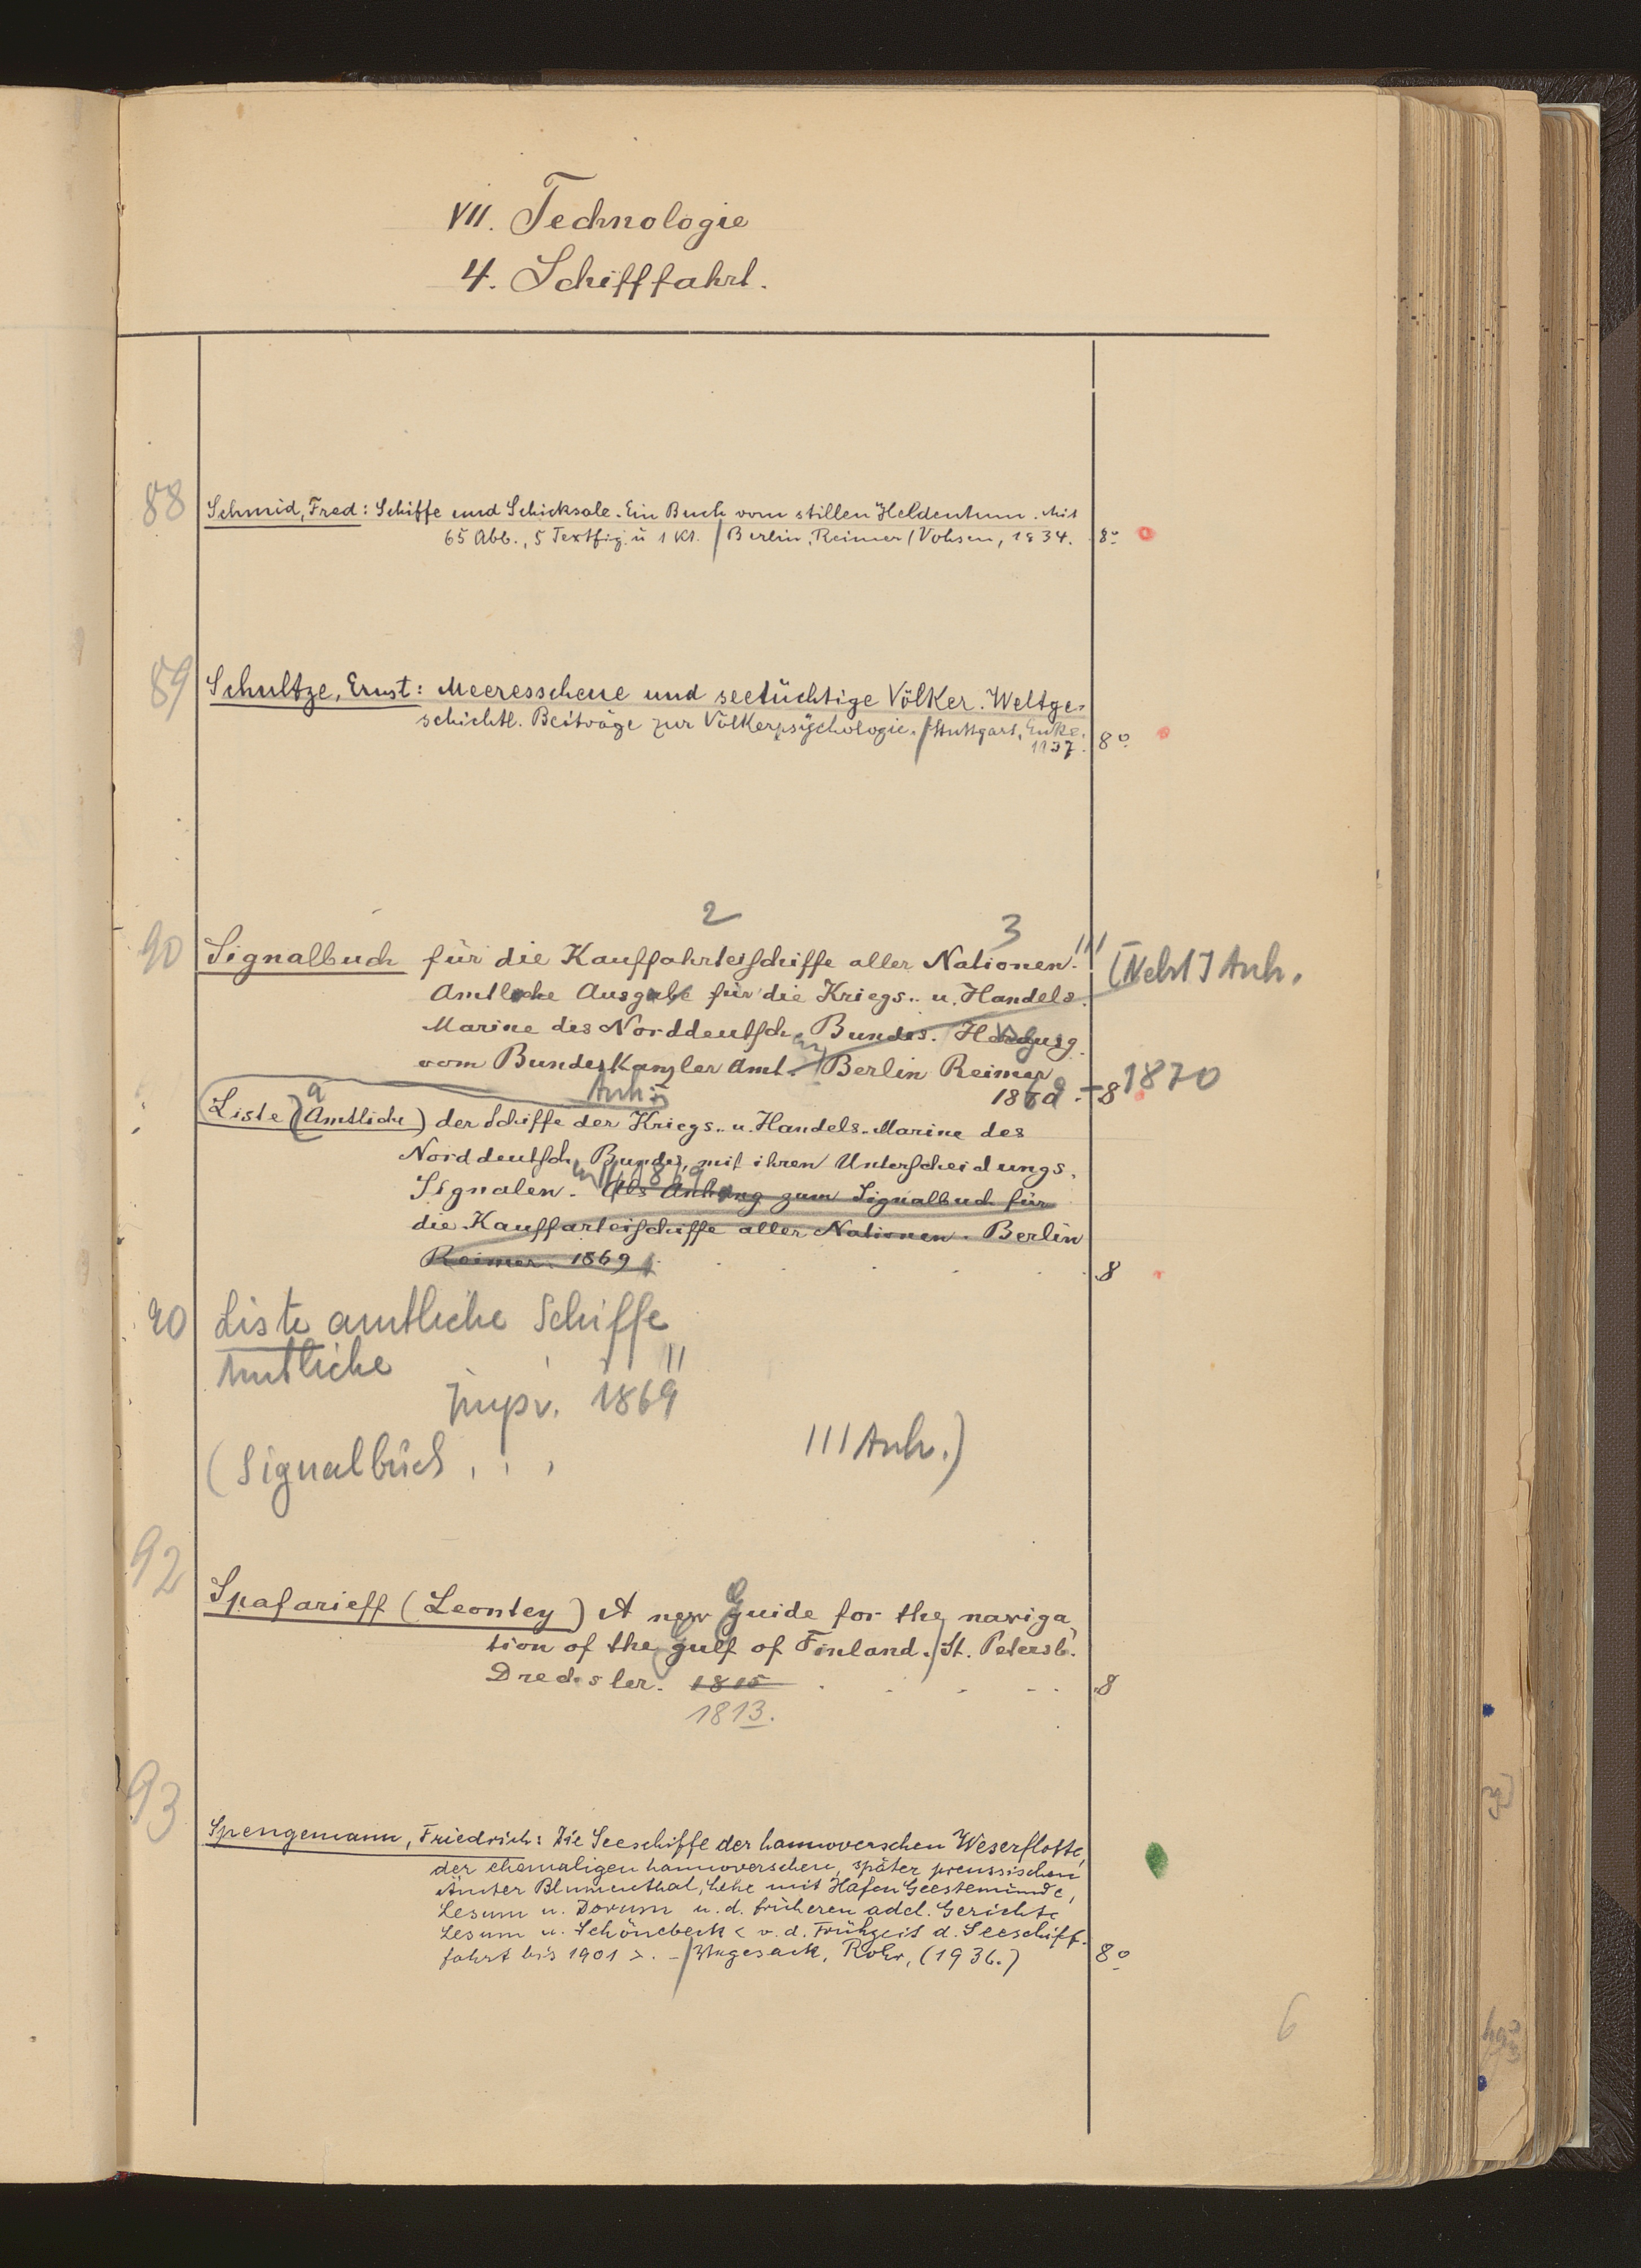 VII. Technologie
4. Schifffahrt.
88 Schmid, Fred: Schiffe und Schicksale. Ein Buch vom stillen Heldentum. Mit
65 Abb., 5 Textfig. u 1 Kt. / Berlin, Reimer / Vohsen, 1934. 8°
89 Schultze, Ernst: Meeresscheue und seetüchtige Völker. Weltge-
schichtl. Beiträge zur Völkerpsychologie. / Stuttgart, Enke.
1937. 8°
2 3
90 Signalbuch für die Kauffahrteischiffe aller Nationen. III (Nebst I Anh.
Amtliche Ausgabe für die Kriegs- u. Handels-
Marine des Norddeutsch. Bundes. Herausg.
vom Bundeskanzler Amt. / Berlin Reimer
1869 - 8 1870
a Anh.
Liste (Amtliche) der Schiffe der Kriegs- u. Handels-Marine des
Norddeutsch. Bundes, mit ihren Unterscheidungs-
Signalen. Als Anhang zum Signalbuch für
die Kauffarteischiffe aller Nationen. Berlin
Reimer. 1869 8
90 Liste amtliche Schiffe
Amtliche ' ' ' 11
1869
(Signalbuch . . . III Anh.)
92 Spafarieff (Leontey) A new Guide for the naviga-
tion of the gulf of Finland. / St. Petersb.
Drechsler. 1815 8
1813.
93 Spengemann, Friedrich: Die Seeschiffe der hannoverschen Weserflotte,
der ehemaligen hannoverschen, später preussischen
Ämter Blumenthal, Lehe mit Hafen Geestemünde,
Lesum u. Dorum u. d. früheren adel. Gerichte
Lesum u. Schönebeck < v. d. Frühzeit d. Seeschiff-
fahrt bis 1901 >. - / Vegesack, Rohr, (1936.) 8°
6